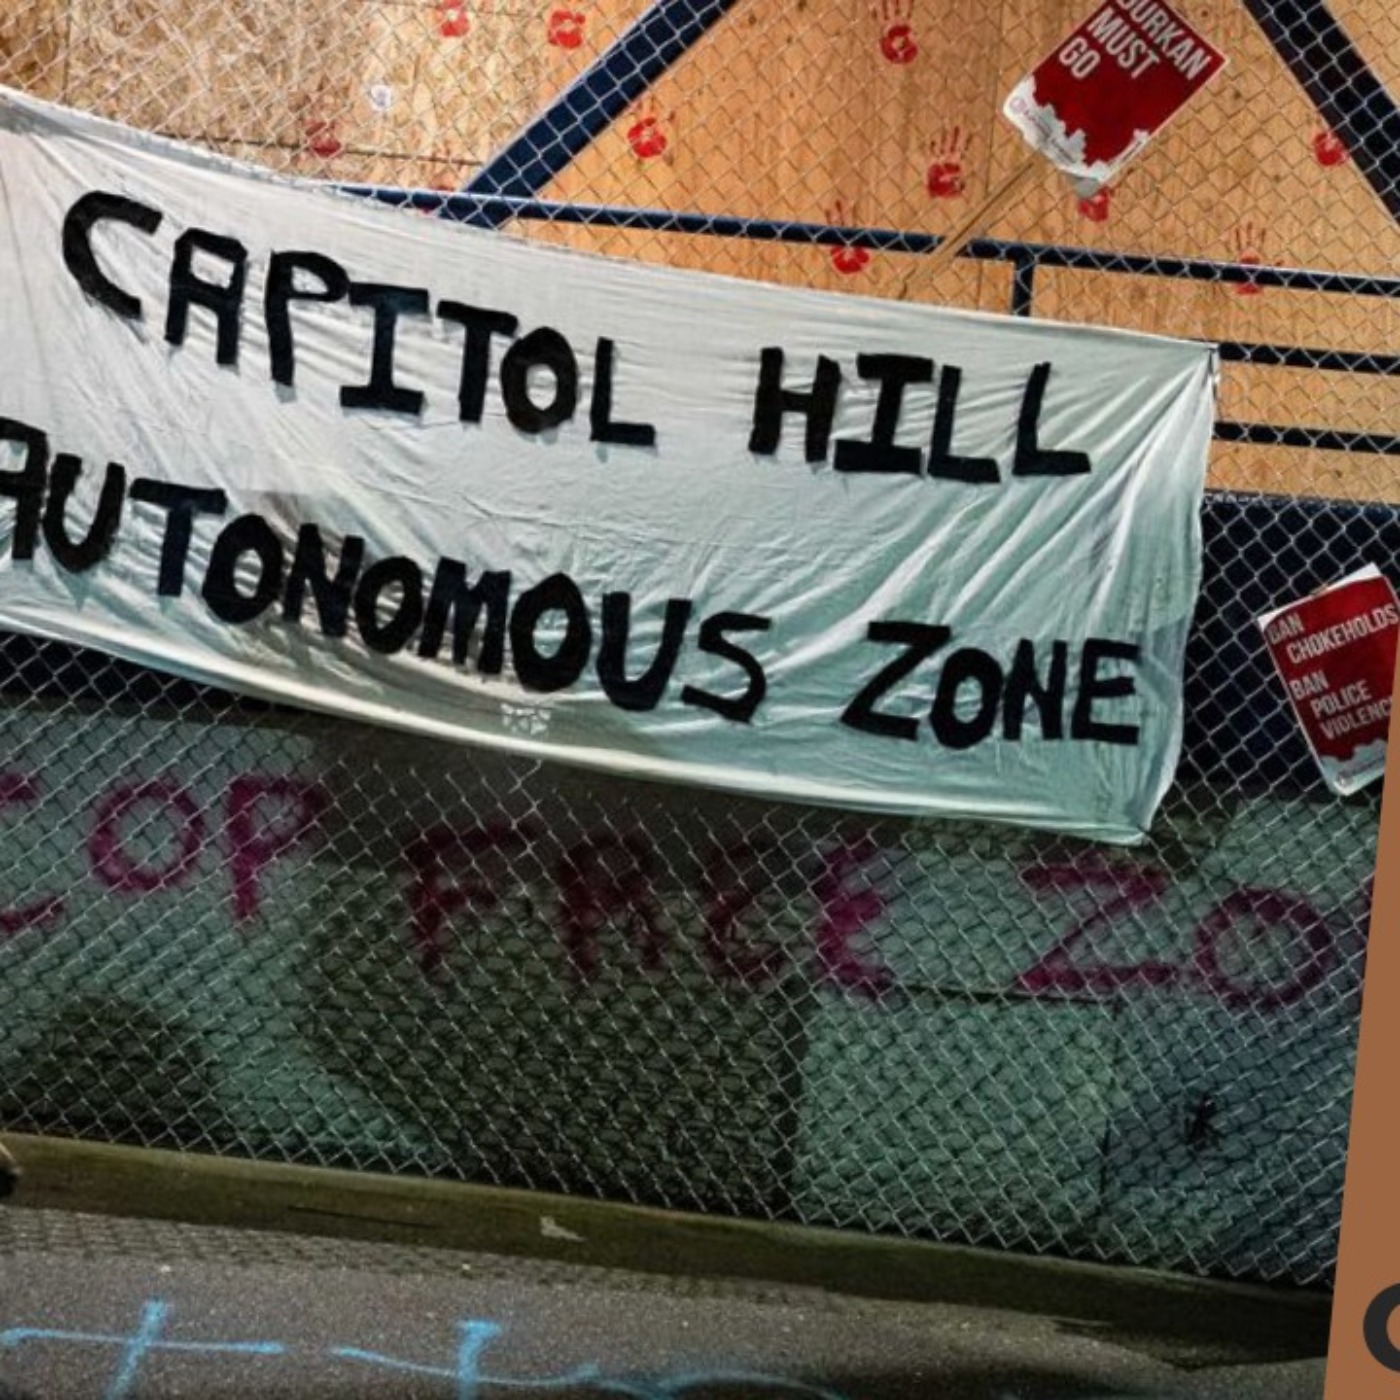 DURKAN
MUST
GO
CAPITOL HILL
AUTONOMOUS ZONE
BAN
CHOKEHOLDS
BAN
POLICE
VIOLENC
COP FREE ZO